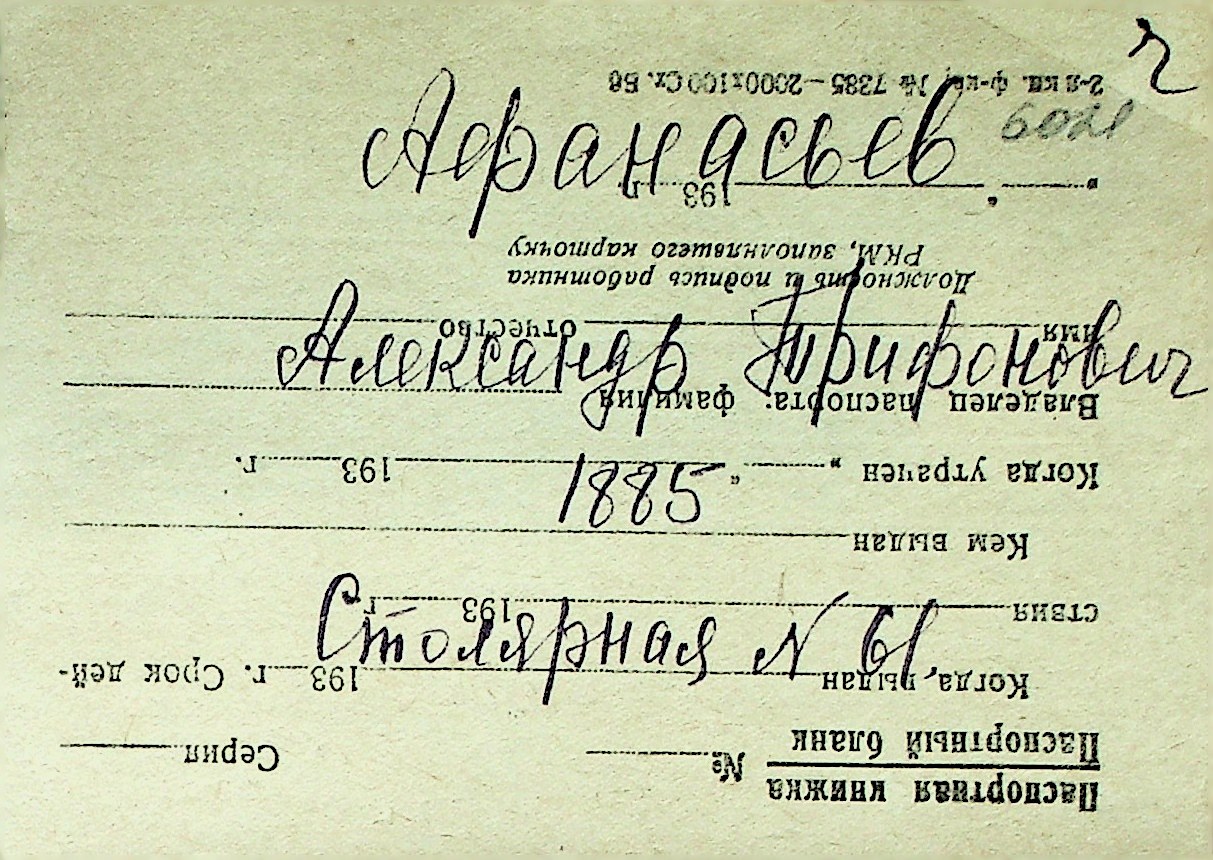 ч
2-я кв. ф-ка, № 7385—2000х100 Сх. Б6
6021
Афанасьев
„ “ 193 г.
Должность и подпись работника
РКМ, заполнявшего карточку
Александр Трифонович
имя отчество
Владелец паспорта: фамилия
Когда утрачен „ “ 193 г.
1885
Кем выдан
ствия 193 г.
Столярная N 61
Когда выдан 193 г. Срок дей-
Паспортная книжка
Паспортный бланк
№ Серия